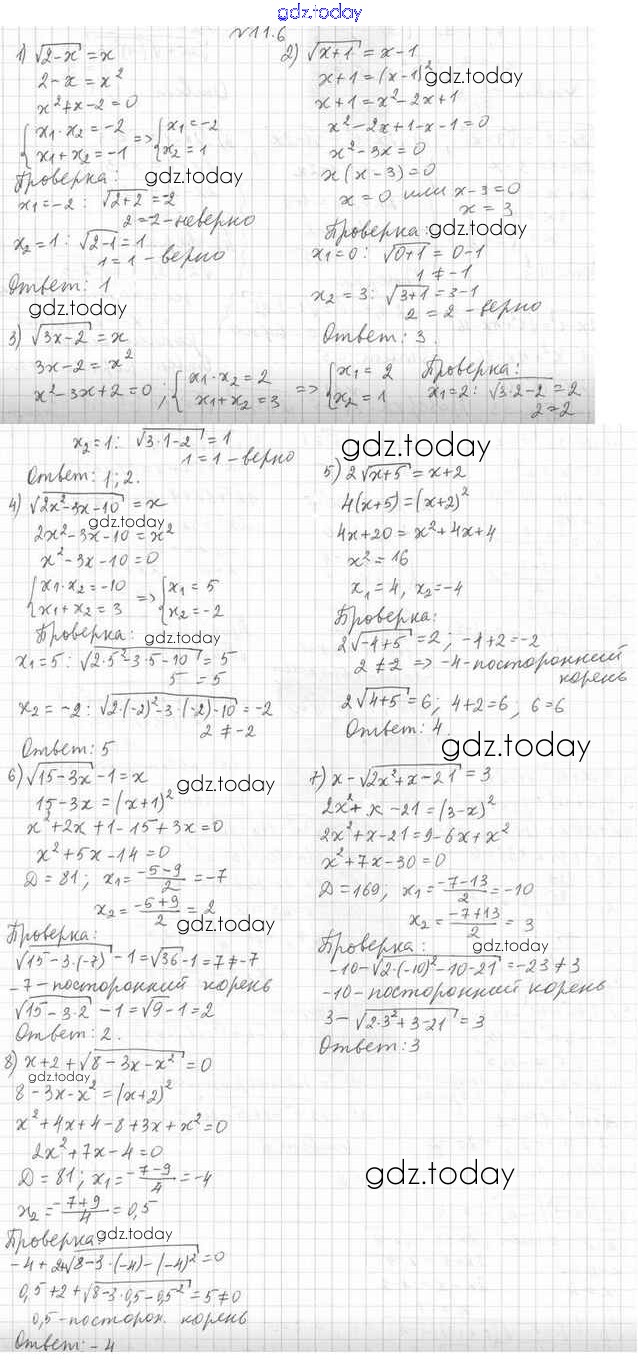 gdz.today
№11.6
1) √(2-x) = x
2-x = x²
x²+x-2=0
{x₁·x₂=-2 => {x₁=-2
{x₁+x₂=-1 {x₂=1
Проверка: gdz.today
x₁=-2: √(2+2)=-2
2=-2-неверно
x₂=1: √(2-1)=1
1=1-верно
Ответ: 1
gdz.today
2) √(x+1) = x-1
x+1=(x-1)² gdz.today
x+1=x²-2x+1
x²-2x+1-x-1=0
x²-3x=0
x(x-3)=0
x=0 или x-3=0
x=3
Проверка: gdz.today
x₁=0: √(0+1)=0-1
1≠-1
x₂=3: √(3+1)=3-1
2=2-верно
Ответ: 3.
3) √(3x-2) = x
3x-2=x²
x²-3x+2=0; {x₁·x₂=2 => {x₁=2
{x₁+x₂=3 {x₂=1
Проверка:
x₁=2: √(3·2-2)=2
2=2
x₂=1: √(3·1-2)=1
1=1-верно
Ответ: 1; 2.
gdz.today
4) √(2x²-3x-10) = x
gdz.today
2x²-3x-10=x²
x²-3x-10=0
{x₁·x₂=-10 => {x₁=5
{x₁+x₂=3 {x₂=-2
Проверка: gdz.today
x₁=5: √(2·5²-3·5-10)=5
5=5
x₂=-2: √(2·(-2)²-3·(-2)-10)=-2
2≠-2
Ответ: 5
5) 2√(x+5)=x+2
4(x+5)=(x+2)²
4x+20=x²+4x+4
x²=16
x₁=4, x₂=-4
Проверка:
2√(-4+5)=2; -4+2=-2
2≠2 => -4-посторонний
корень
2√(4+5)=6; 4+2=6, 6=6
Ответ: 4.
gdz.today
6) √(15-3x)-1=x
gdz.today
15-3x=(x+1)²
x²+2x+1-15+3x=0
x²+5x-14=0
D=81; x₁=(-5-9)/2=-7
x₂=(-5+9)/2=2
gdz.today
Проверка:
√(15-3·(-7))-1=√36-1=7≠-7
-7-посторонний корень
√(15-3·2)-1=√9-1=2
Ответ: 2.
7) x-√(2x²+x-21)=3
2x²+x-21=(3-x)²
2x²+x-21=9-6x+x²
x²+7x-30=0
D=169, x₁=(-7-13)/2=-10
x₂=(-7+13)/2=3
Проверка: gdz.today
-10-√(2·(-10)²-10-21)=-23≠3
-10-посторонний корень
3-√(2·3²+3-21)=3
Ответ: 3
8) x+2+√(8-3x-x²)=0
gdz.today
8-3x-x²=(x+2)²
x²+4x+4-8+3x+x²=0
2x²+7x-4=0
D=81; x₁=(-7-9)/4=-4
x₂=(-7+9)/4=0,5
gdz.today
Проверка: gdz.today
-4+2+√(8-3·(-4)-(-4)²)=0
0,5+2+√(8-3·0,5-0,5²)=5≠0
0,5-посторон. корень
Ответ: -4